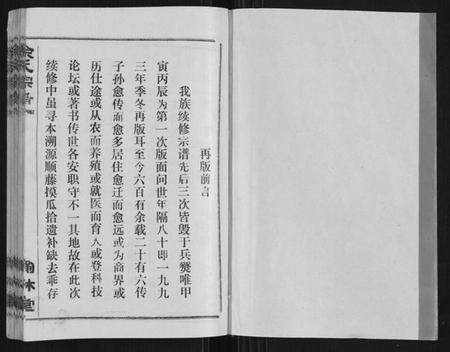 再版前言
我族续修宗谱先后三次皆毁于兵燹唯甲
寅丙辰为第一次版面问世年隔八十即一九九
三年季冬再版耳至今六百有余载二十有六传
子孙愈传而愈多居住愈迁而愈远或为商界或
历仕途或从农而养殖或就医而育人或登科技
论坛或著书传世各安职守不一其地故在此次
续修中虽寻本溯源顺藤摸瓜拾遗补缺去乖存
氏宗
林堂